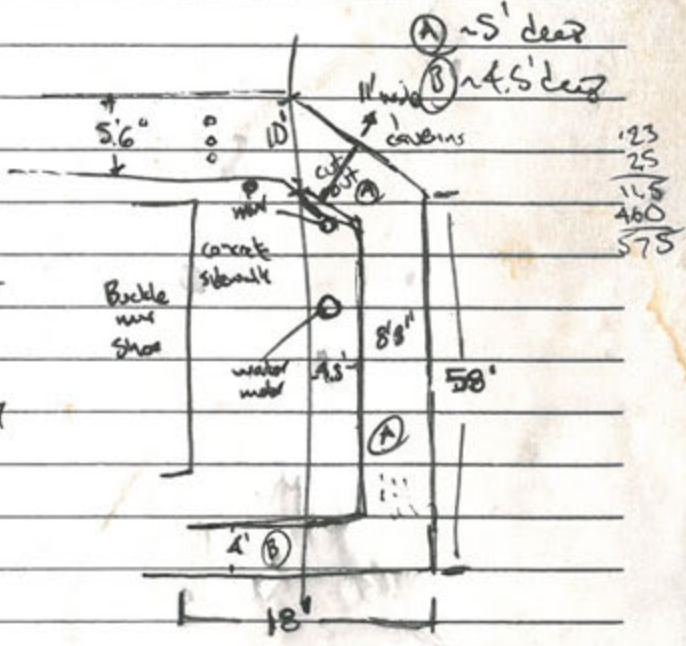 Ⓐ ~5' deep
Ⓑ ~4.5' deep
5'6"
10'
11' wide
caverns
cut out
Ⓐ
.23
25
115
460
575
concrete
sidewalk
Buckle
Shoe
water
4.5'
8'8"
58'
Ⓐ
4' Ⓑ
18'